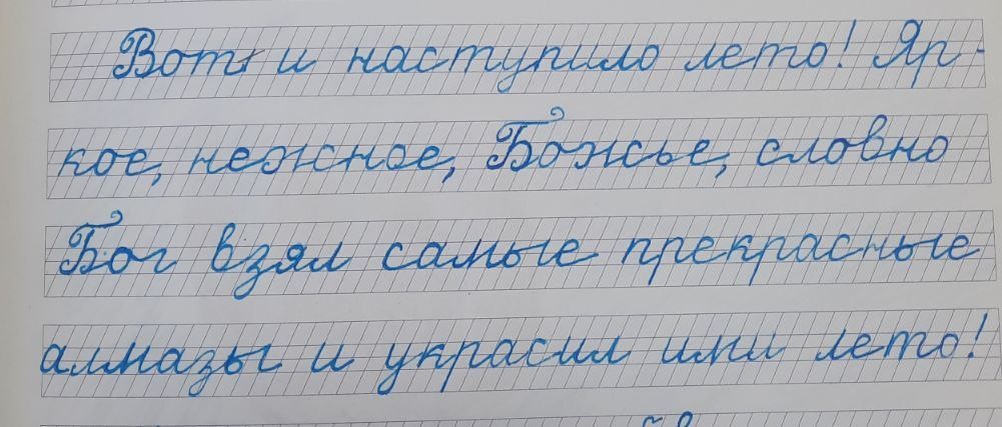 Вот и наступило лето! Яр-
кое, нежное, Божье, словно
Бог взял самые прекрасные
алмазы и украсил ими лето!